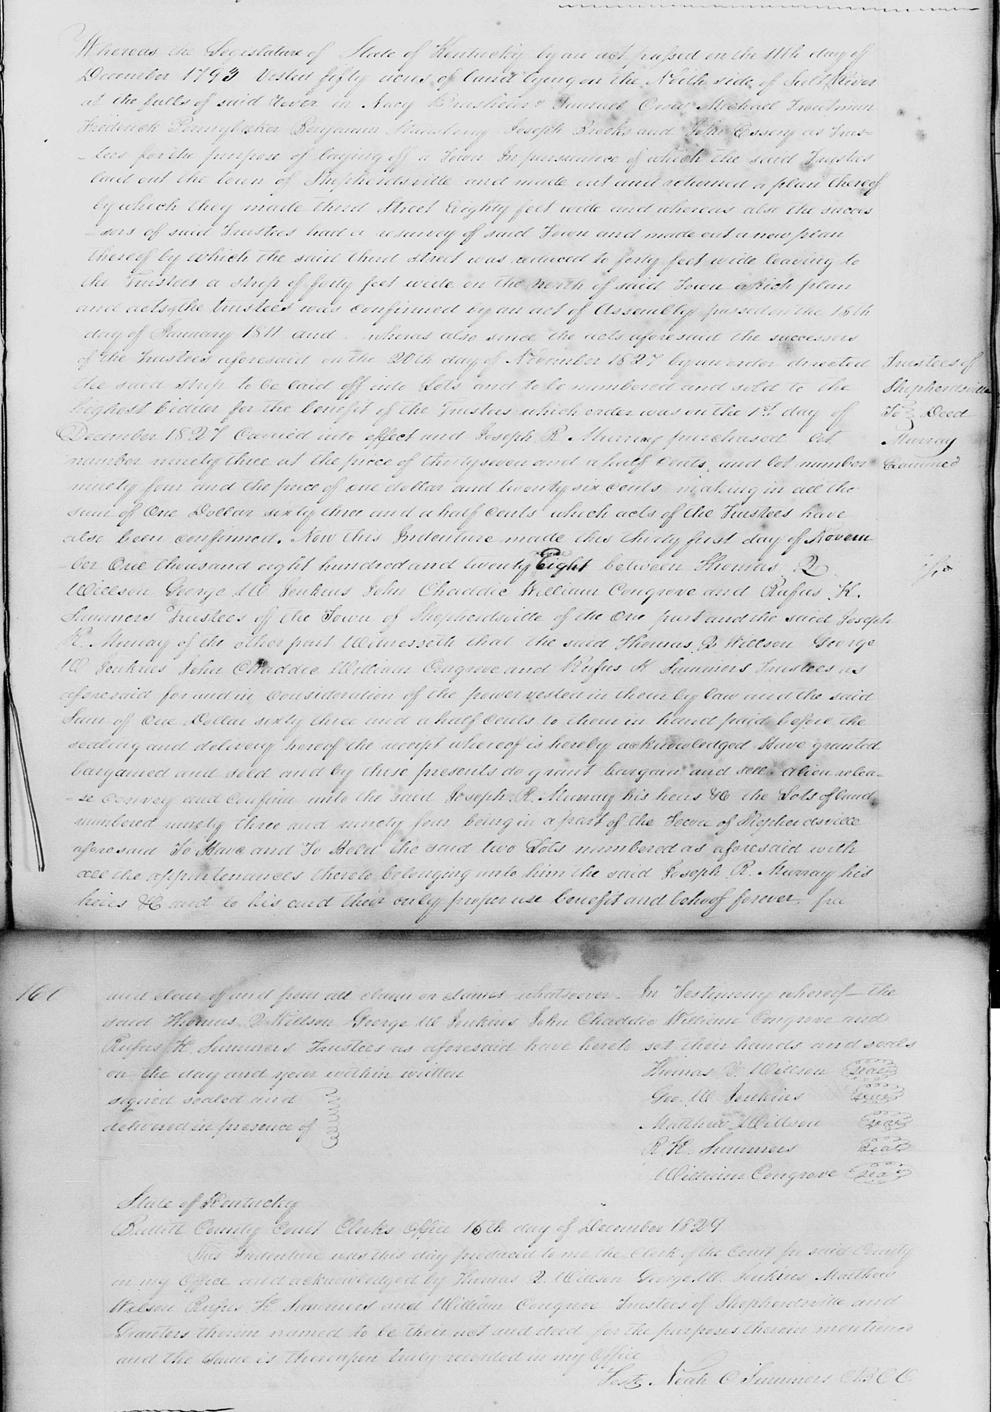 Whereas the Legislature of State of Kentucky by an act passed on the 11th day of
December 1793 Vested fifty acres of land lying on the North side of Salt River
at the falls of said River in Nacy Brashears Michael Troutman
Frederick Pennybaker Benjamin Joseph Brooks and John Essery as Trus-
-tees for the purpose of laying off a Town In pursuance of which the said Trustees
laid out the town of Shepherdsville and made out and returned a plan thereof
by which they made third Street Eighty feet wide and whereas also the succes
-sors of said Trustees had a resurvey of said Town and made out a new plan
thereof by which the said third street was reduced to forty feet wide leaving to
the Trustees a strip of forty feet wide on the north of said Town which plan
and acts of the trustees was confirmed by an act of Assembly passed on the 16th
day of January 1811 and whereas also since the acts aforesaid the successors
of the Trustees aforesaid on the 20th day of November 1827 by an order directed
the said strip to be laid off into Lots and to be numbered and sold to the
highest bidder for the benefit of the Trustees which order was on the 1st day of
December 1827 Carried into effect and Joseph R. Murray purchased Lot
number ninety three at the price of thirty seven and a half Cents, and lot number
ninety four and the price of one dollar and twenty six cents making in all the
sum of One Dollar sixty three and a half Cents which acts of the Trustees have
also been confirmed. Now this Indenture made this thirty first day of Novem
-ber One thousand eight hundred and twenty Eight between Thomas Q
Willson George W Jenkins John Chaddic William Congrove and Rufus K.
Summers Trustees of the Town of Shepherdsville of the One part and the said Joseph
R. Murray of the other part Witnesseth that the said Thomas Q Willson George
W Jenkins John Chaddic William Congrove and Rufus K Summers Trustees as
aforesaid for and in Consideration of the power vested in them by law and the said
Sum of One Dollar sixty three and a half Cents to them in hand paid before the
sealing and delivery hereof the receipt whereof is hereby acknowledged Have granted
bargained and sold and by these presents do grant bargain and sell alien relea-
-se Convey and Confirm unto the said Joseph R. Murray his heirs &C the Lots of land
numbered ninety three and ninety four being in a part of the Town of Shepherdsville
aforesaid To Have and To Hold the said two Lots numbered as aforesaid with
all the appurtenances thereto belonging unto him the said Joseph R. Murray his
heirs &C and to his and their only proper use benefit and behoof forever free
Trustees of
Shepherdsville
To} Deed
Murray
Examined
160
and clear of and from all claim or claims whatsoever. In Testimony whereof the
said Thomas Q Willson George W Jenkins John Chaddic William Congrove and
Rufus K. Summers Trustees as aforesaid have hereto set their hands and seals
on the day and year within written
signed sealed and
delivered in presence of
Thomas Q. Willson Seal
Geo. W Jenkins Seal
Matthew Willson Seal
R K. Summers Seal
William Congrove Seal
State of Kentucky
Bullitt County Court Clerks Office 16th day of December 1829
This Indenture was this day produced to me the Clerk of the Court for said County
in my Office and acknowledged by Thomas Q. Willson George W. Jenkins Matthew
Wilson Rufus K. Summers and William Congrove Trustees of Shepherdsville and
Grantors therein named to be their act and deed for the purposes therein mentioned
and the same is thereupon truly recorded in my Office
Teste Noah C Summers CBCC